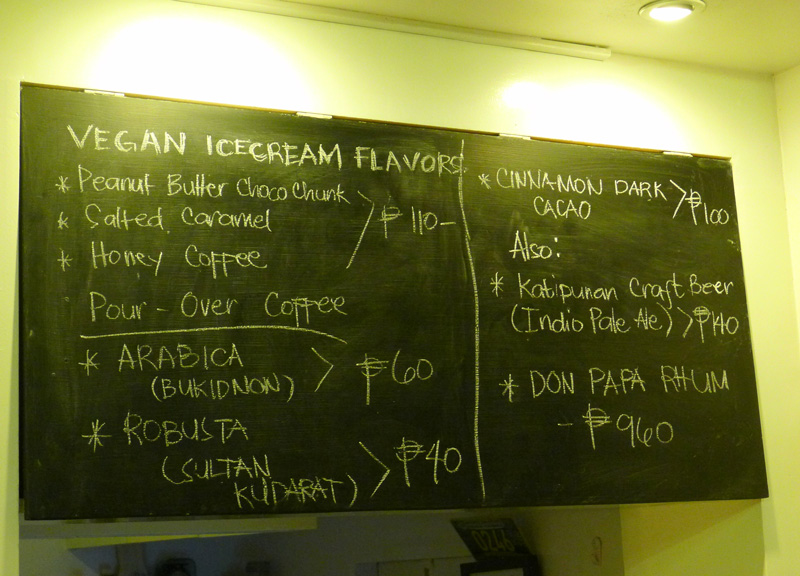 VEGAN ICECREAM FLAVORS
* Peanut Butter Choco Chunk
* Salted Caramel > ₱ 110-
* Honey Coffee
Pour-Over Coffee
* ARABICA
(BUKIDNON) > ₱60
* ROBUSTA
(SULTAN
KUDARAT) > ₱40
* CINNAMON DARK
CACAO > ₱100
Also:
* Katipunan Craft Beer
(Indio Pale Ale) > ₱140
* DON PAPA RHUM
- ₱960